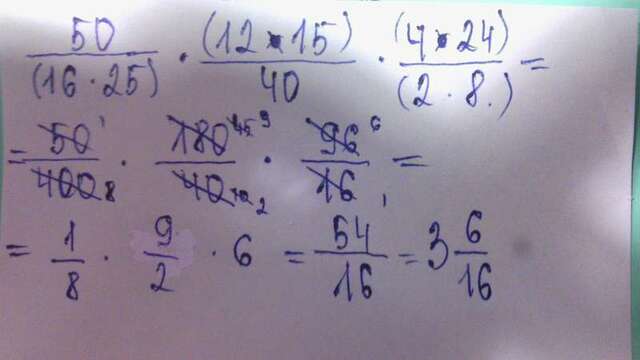 50/(16·25) · (12·15)/40 · (4·24)/(2·8.) =
= 50¹/400 8 · 180 45 9/40 10 2 · 96 6/16 1 =
= 1/8 · 9/2 · 6 = 54/16 = 3 6/16